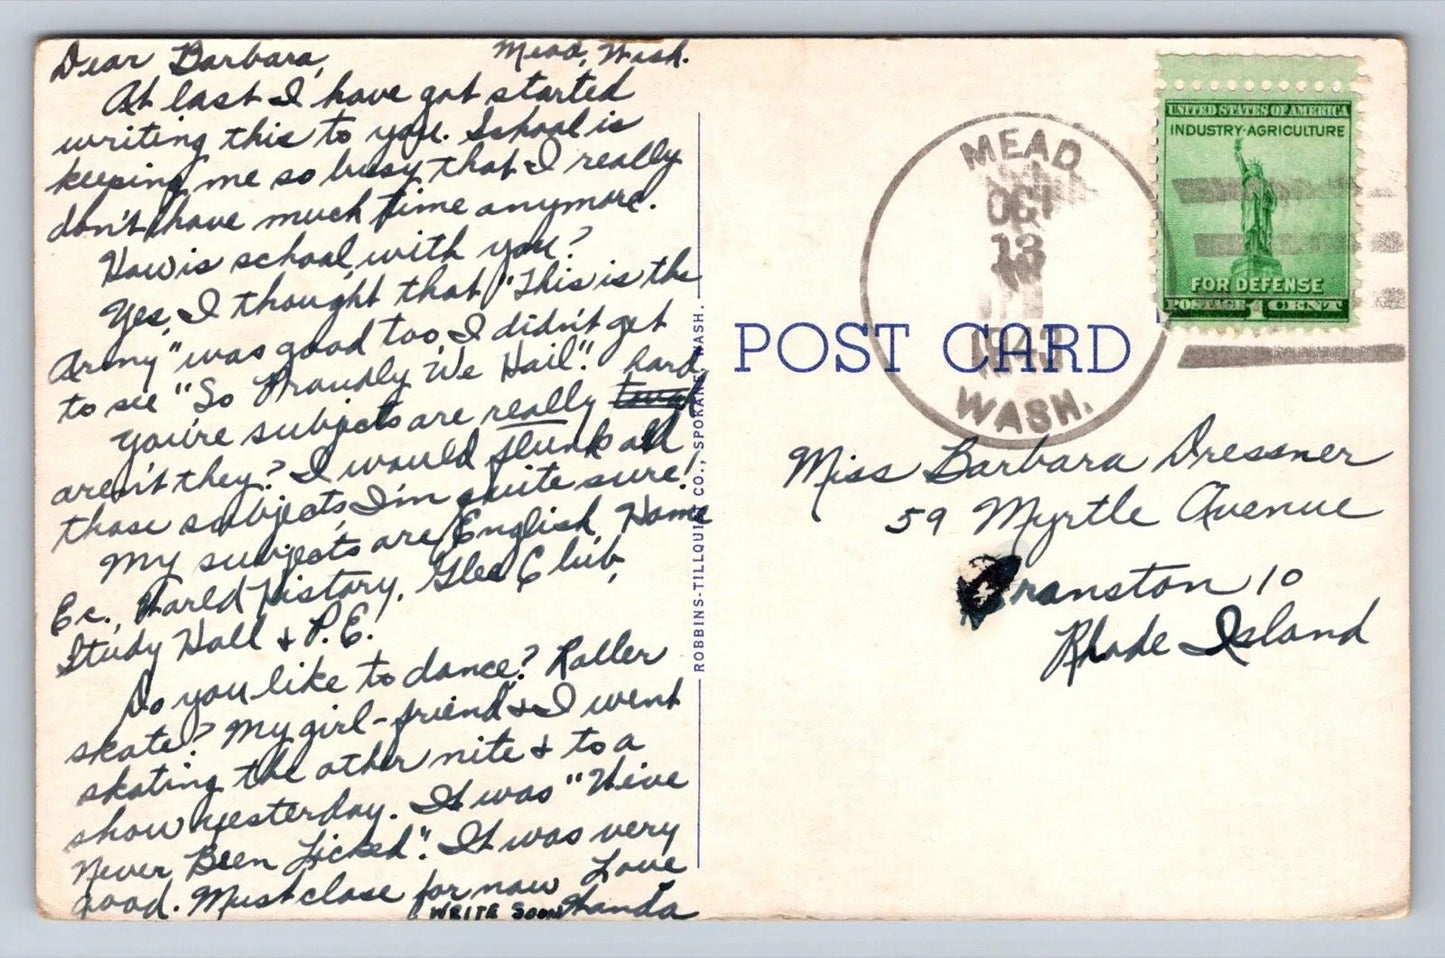 Dear Barbara,
Mead, Wash.
At last I have got started
writing this to you. School is
keeping me so busy that I really
don't have much time anymore.
How is school with you?
Yes, I thought that "This is the
Army" was good too, I didn't get
to see "So Proudly We Hail". hard,
You're subjects are really
aren't they? I would flunk all
those subjects, I'm quite sure!
My subjects are English, Home
Ec., World History, Glee Club,
Study Hall & P.E.
Do you like to dance? Roller
skate? My girl-friend & I went
skating the other nite & to a
show yesterday. It was "We've
Never Been Licked". It was very
good. Must close for now Love
WRITE SOON Wanda
ROBBINS-TILLQUIST CO., SPOKANE, WASH.
POST CARD
MEAD
OCT
13
1943
WASH.
UNITED STATES OF AMERICA
INDUSTRY-AGRICULTURE
FOR DEFENSE
POSTAGE 1 CENT
Miss Barbara Dressner
59 Myrtle Avenue
Cranston 10
Rhode Island